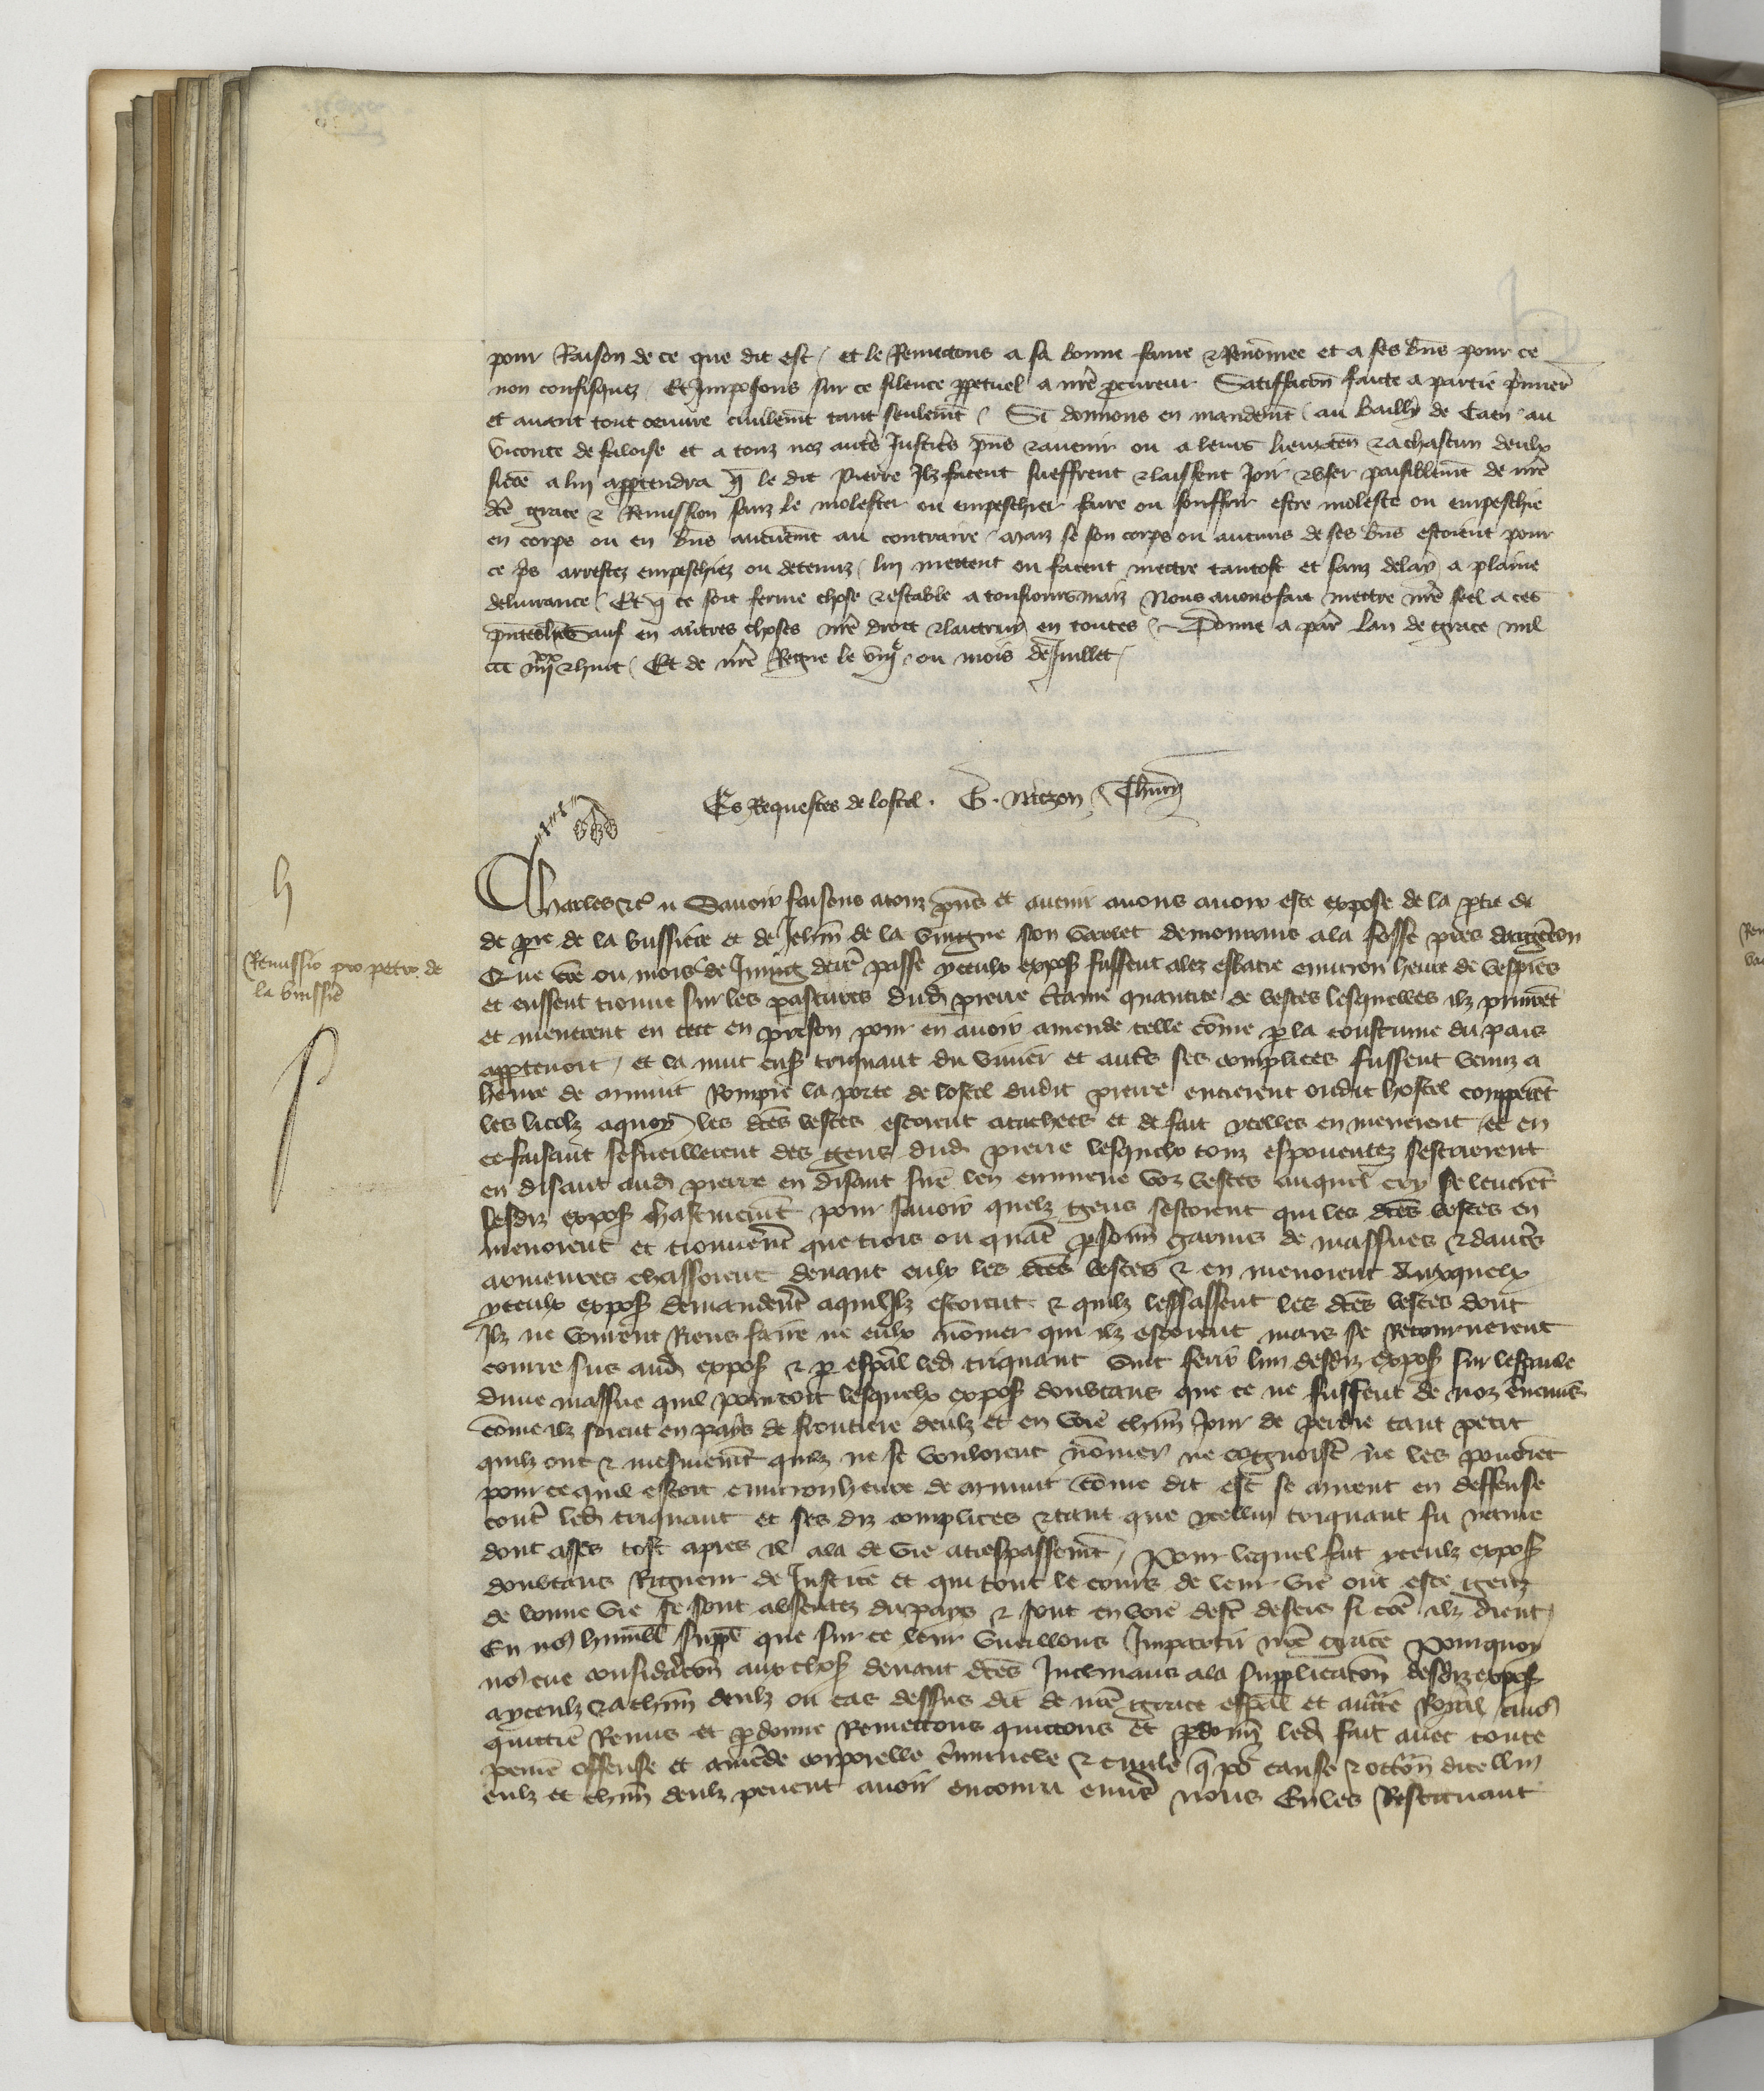 pour Raison de ce que dit est / et le Remettons a sa bonne fame & Renõmee et a ses bñs pour ce
non confisquez / Et Imposons sur ce silence ppetuel a nrẽ pcureur Satiffacõn faicte a partie p̃mier̃
et auant tout oeuure ciuilem̃t tant seulem̃t / Si donnons en mandem̃t au Bailly de Caen au
viconte de faloise et a touz noz autr̃s Justicr̃s p̃ns & auenir ou a leurs lieuxten̄ & a chascun deulx
sicõe a luy apptendra q̃ le dit Pierre Ilz facent sueffrent & laissent Joir & vser paisiblem̃t de nr̃e
dc̃e grace & Remission sanz le molester ou empeschier faire ou souffrir estre moleste ou empeschie
en corps ou en bñs aucunem̃t au contraire / maiz se son corps ou aucuns de ses bñs estoient pour
ce p̃s arrestez empeschiez ou detenuz / luy mettent ou facent mettre tantost et sanz delay a plaine
deliurance / Et q̃ ce soit ferme chose & estable a tousioursmaiz Nous auons fait mettre nr̃e seel a ces
p̃ntes lr̃es Sauf en autres choses nr̃e droit & lautruy en toutes / Donne a par̃ lan de grace mil
ccc iiijxx & huit / Et de nr̃e Regne le viije ou mois de Juillet /
Es Requestes de lostel . G . Mezon / Thury
Charles &c̃ Sauoir faisons a touz p̃ns et auenir auons auoir este expose de la ptie de
de pre de la bussiere et de Jehan de la vingne son varlet demourans a la fosse pres
Que cõe ou mois de Juing derr̃ passe yceulx expos̃ fussent alez esbatre enuiron heure de vespres
et eussent trouue sur les pastures dud̃ pierre c̃taine quantite de bestes lesquelles ilz prindrẽt
et menerent en tect en prison pour en auoir amende telle cõme p la coustume du pais
apptenoit / et la nuit ens̃ triquaut du viuier et autr̃s ses complices fussent venuz a
heure de mynuit Rompre la porte de lostel dudit pierre entrerent oudit hostel copperẽt
les licolz aquoy les dc̃es bestes estoient atachees et de fait ycelles en menerent / et en
ce faisant sesueillerent des gens dud̃ pierre lesquelx touz espouentez sescrierent
en disant aud̃ pierre en disant sir̃e len emmene voz bestes auquel cry se leuerẽt
lesdiz expos̃ hastiuem̃t pour sauoir quelz gens sestoient qui les dc̃es bestes en
menoient et trouuerẽt que trois ou quatr̃ psoñn garnis de massues & dautr̃s
armeures chassoient deuant eulx les dc̃es bestes & en menoient Auxquelx
yceulx expos̃ demanderẽt aqui Ilz estoient & quilz lessassent les dc̃es bestes dont
Ilz ne vouirent Riens faire ne eulx nõmer qui ilz estoient mais se Retournerent
courre sus aud̃ expos̃ & p espãl led̃ triquaut vint ferir lun desdiz expos̃ sur lespaule
dune massue quil portoit lesquelx expos̃ doubtans que ce ne fussent de noz ẽnemis
cõme ilz soient en pays de frontiere deulz et en voie ch̃un Jour de perdre tant petit
quilz ont & mesmem̃t quilz ne se vouloient nõmer ne cognoistr̃ ne les pouoiẽt
pour ce quil estoit enuiron heure de mynuit cõme dit est se mirent en deffense
contr̃ led̃ triquaut et ses diz complices & tant que ycellui triquaut fu naure
dont assez tost apres il ala de vie a trespassem̃t / Pour lequel fait yceulx expos̃
doubtans Rigueur de Justice et qui tout le cours de leur vie ont este genz
de bonne vie se sont absentez du pays & sont en voie destr̃ desers si cõe ilz dient /
En no9 humbl̃ supp̃l̃ que sur ce leur vueillons Impartir nr̃e grace Pourquoy
no9 eue considr̃acõn aux chos̃ deuant dc̃es Inclinans a la supplicacõn desdiz expos̃
a yceulz & a ch̃un deulz ou cas dessus dit de nr̃e grace esp̃al et auctr̃e Royal auo9
quittie Remis et pdonne Remettons quittons et pdoñn led̃ fait auec toute
peine offense et amẽde corporelle c̃riminele & ciuile q̃ pr̃ cause & occõn dicellui
eulz et ch̃un deulz peuent auoir encouru enuers nous En les Restituant
Remissio pro petro de
la bussie